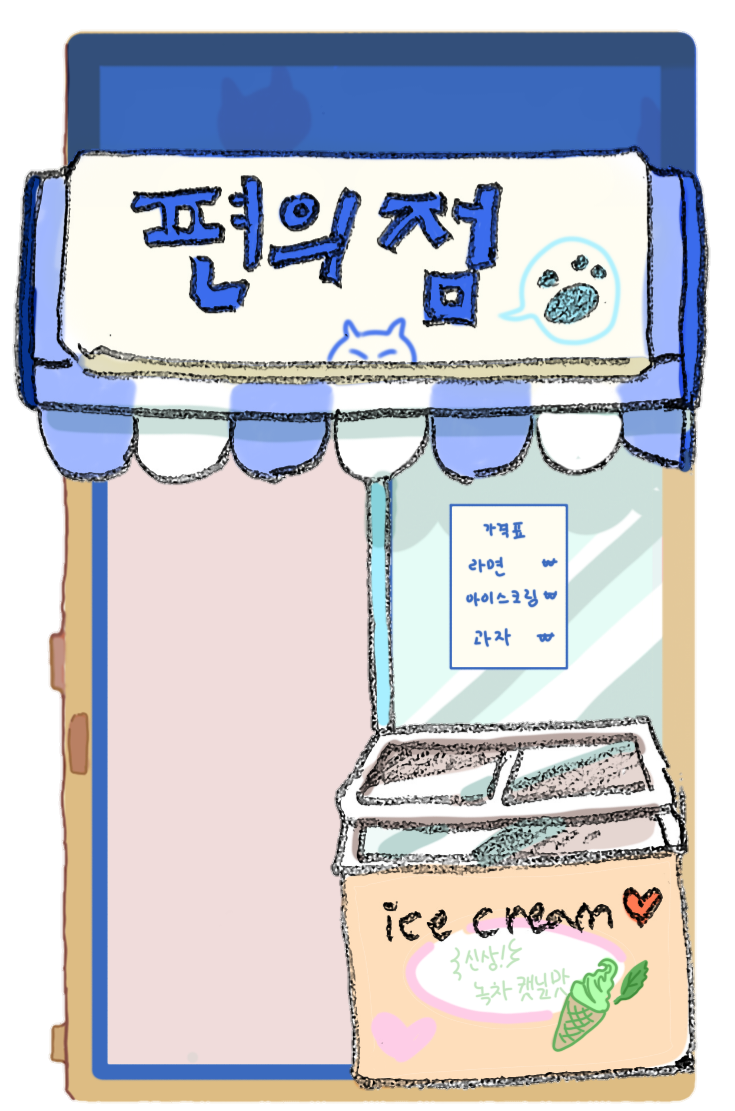 편의점
가격표
라면 ₩
아이스크림 ₩
과자 ₩
ice cream
신상!
녹차 캣닢맛